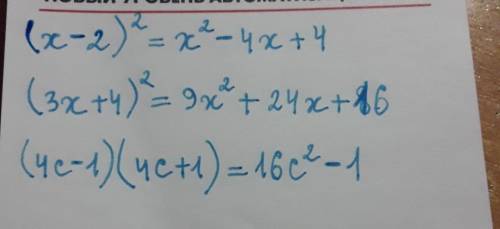 (x-2)² = x² - 4x + 4
(3x+4)² = 9x² + 24x + 16
(4c-1)(4c+1) = 16c² - 1